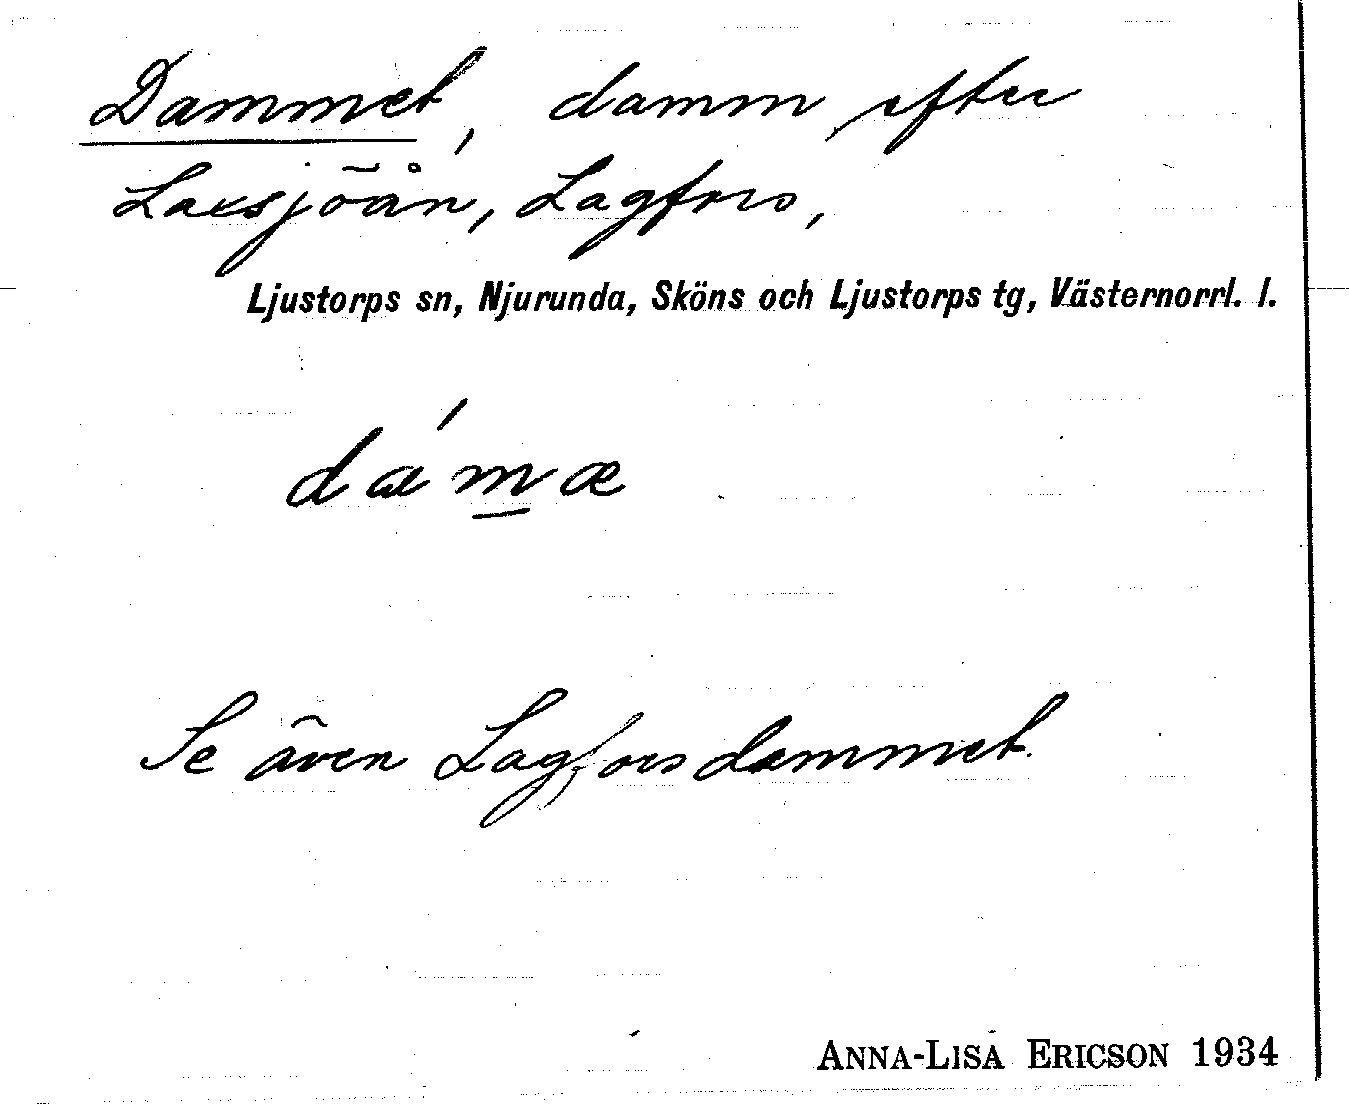 Dammet, damm efter
Laxsjöån, Lagfors,
Ljustorps sn, Njurunda, Sköns och Ljustorps tg, Västernorrl. l.
dám̲æ
Se även Lagforsdammet.
ANNA-LISA ERICSON 1934